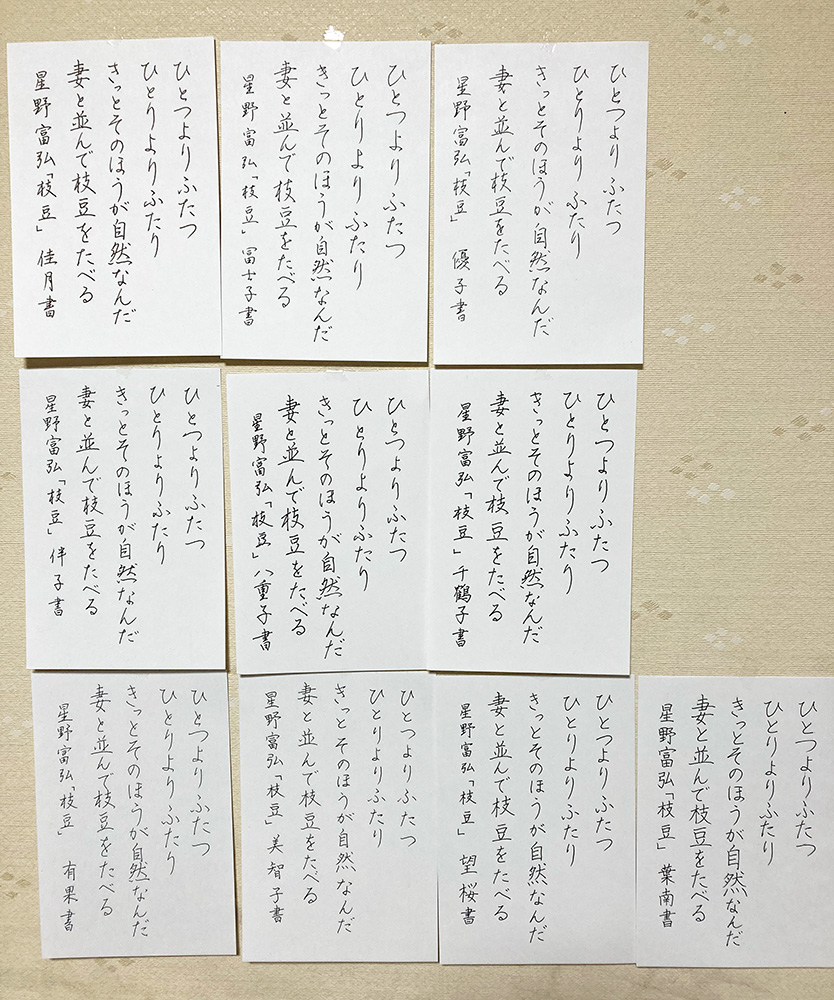 ひとつよりふたつ
ひとりよりふたり
きっとそのほうが自然なんだ
妻と並んで枝豆をたべる
星野富弘「枝豆」 優子書
ひとつよりふたつ
ひとりよりふたり
きっとそのほうが自然なんだ
妻と並んで枝豆をたべる
星野富弘「枝豆」 冨士子書
ひとつよりふたつ
ひとりよりふたり
きっとそのほうが自然なんだ
妻と並んで枝豆をたべる
星野富弘「枝豆」 佳月書
ひとつよりふたつ
ひとりよりふたり
きっとそのほうが自然なんだ
妻と並んで枝豆をたべる
星野富弘「枝豆」 千鶴子書
ひとつよりふたつ
ひとりよりふたり
きっとそのほうが自然なんだ
妻と並んで枝豆をたべる
星野富弘「枝豆」 八重子書
ひとつよりふたつ
ひとりよりふたり
きっとそのほうが自然なんだ
妻と並んで枝豆をたべる
星野富弘「枝豆」 伴子書
ひとつよりふたつ
ひとりよりふたり
きっとそのほうが自然なんだ
妻と並んで枝豆をたべる
星野富弘「枝豆」 葉南書
ひとつよりふたつ
ひとりよりふたり
きっとそのほうが自然なんだ
妻と並んで枝豆をたべる
星野富弘「枝豆」 望桜書
ひとつよりふたつ
ひとりよりふたり
きっとそのほうが自然なんだ
妻と並んで枝豆をたべる
星野富弘「枝豆」 美智子書
ひとつよりふたつ
ひとりよりふたり
きっとそのほうが自然なんだ
妻と並んで枝豆をたべる
星野富弘「枝豆」 有果書